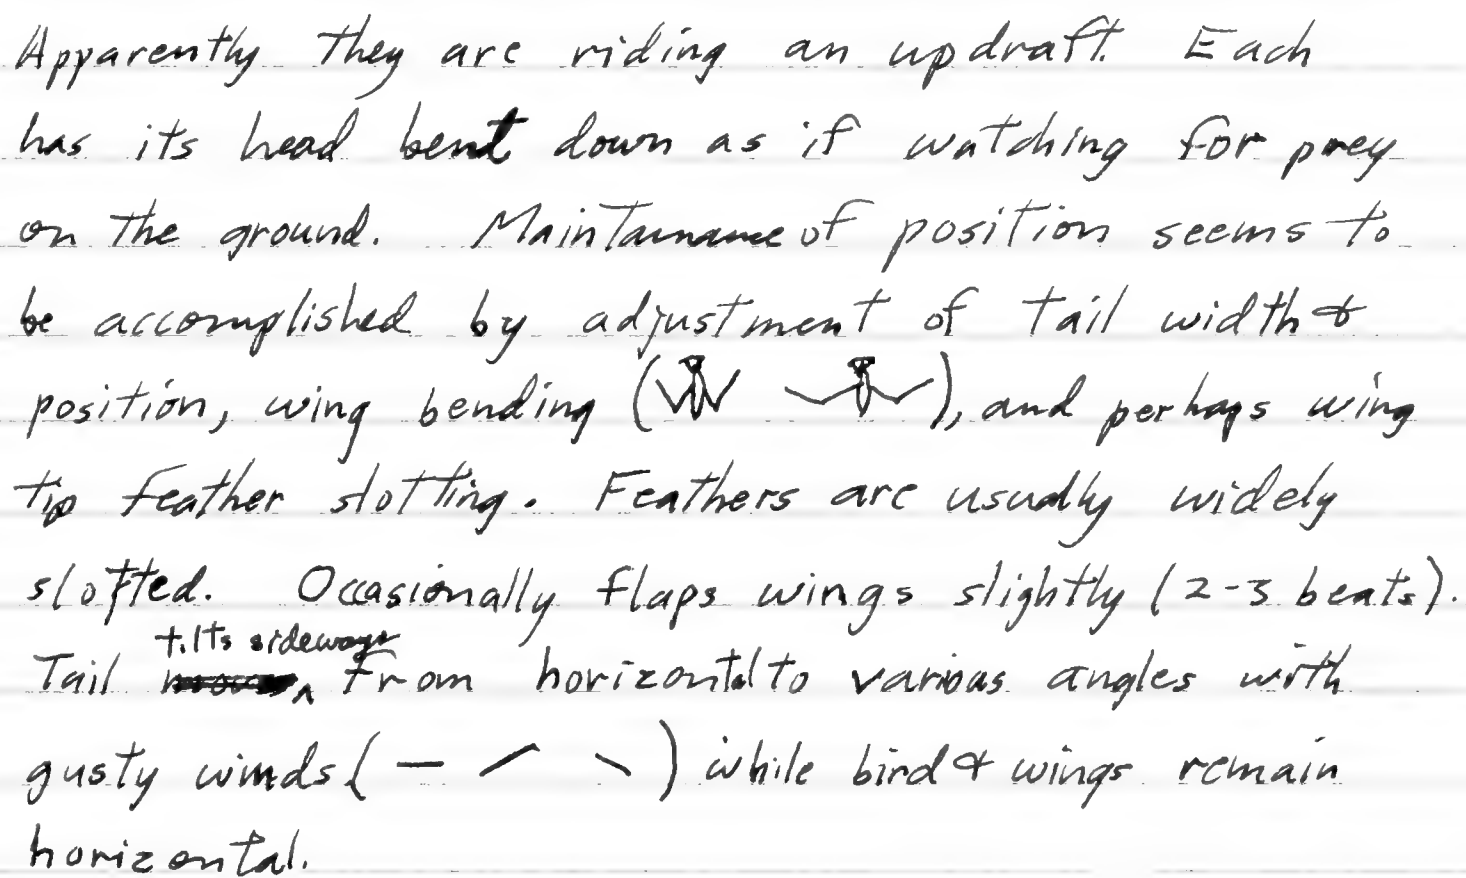 Apparently they are riding an updraft. Each
has its head bent down as if watching for prey
on the ground. Maintainance of position seems to
be accomplished by adjustment of tail width &
position, wing bending ( ), and perhaps wing
tip feather slotting. Feathers are usually widely
slotted. Occasionally flaps wings slightly (2-3 beats).
tilts sideways
Tail ^ from horizontal to various angles with
gusty winds ( — / \ ) while bird & wings remain
horizontal.